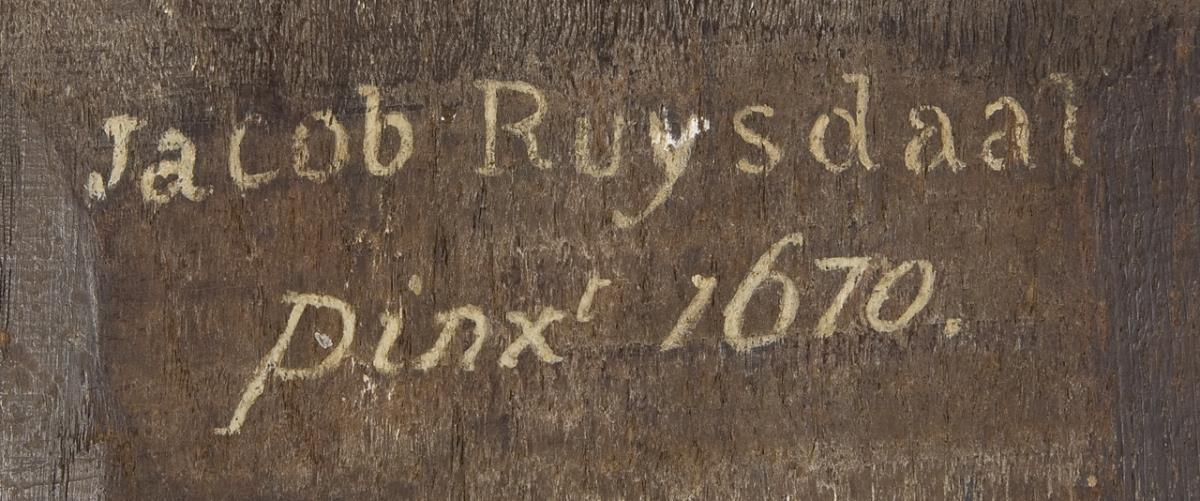 Jacob Ruysdaal
pinxᵗ 1670.